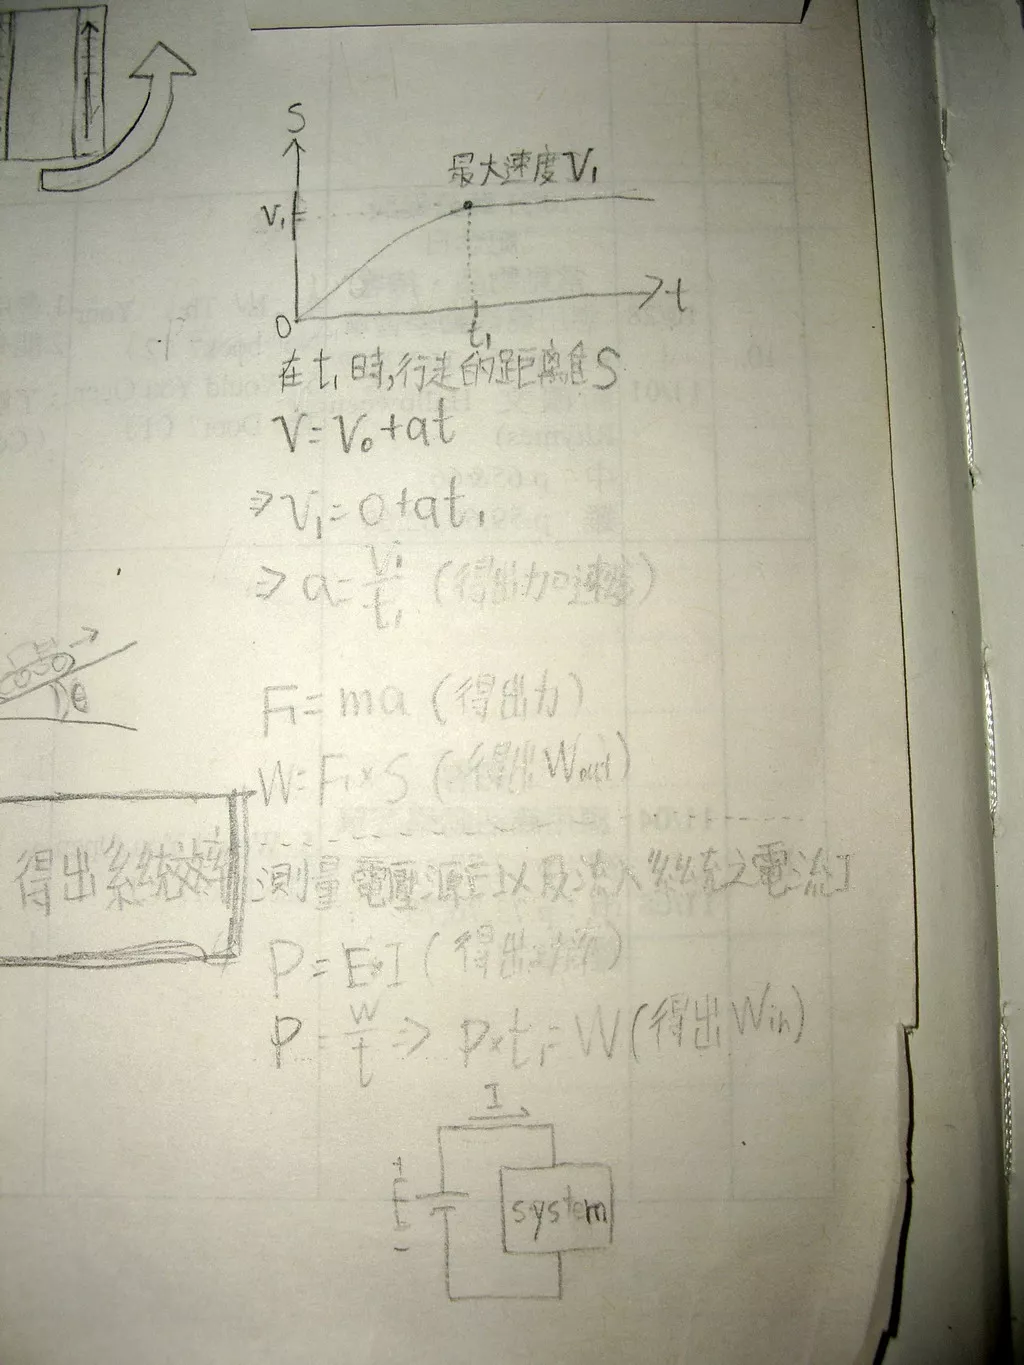 S
最大速度V₁
V₁
0
t
t₁
在t₁時,行走的距離S
V=V₀+at
⇒V₁=0+at₁
⇒a=V₁/t₁ (得出加速度)
θ
F₁=ma (得出力)
W=F₁×S (得出Wout)
得出系統效率
測量電壓源E以及流入系統之電流I
P=E×I (得出功率)
P=W/t ⇒ P×t₁=W (得出Win)
I
+
E
-
system